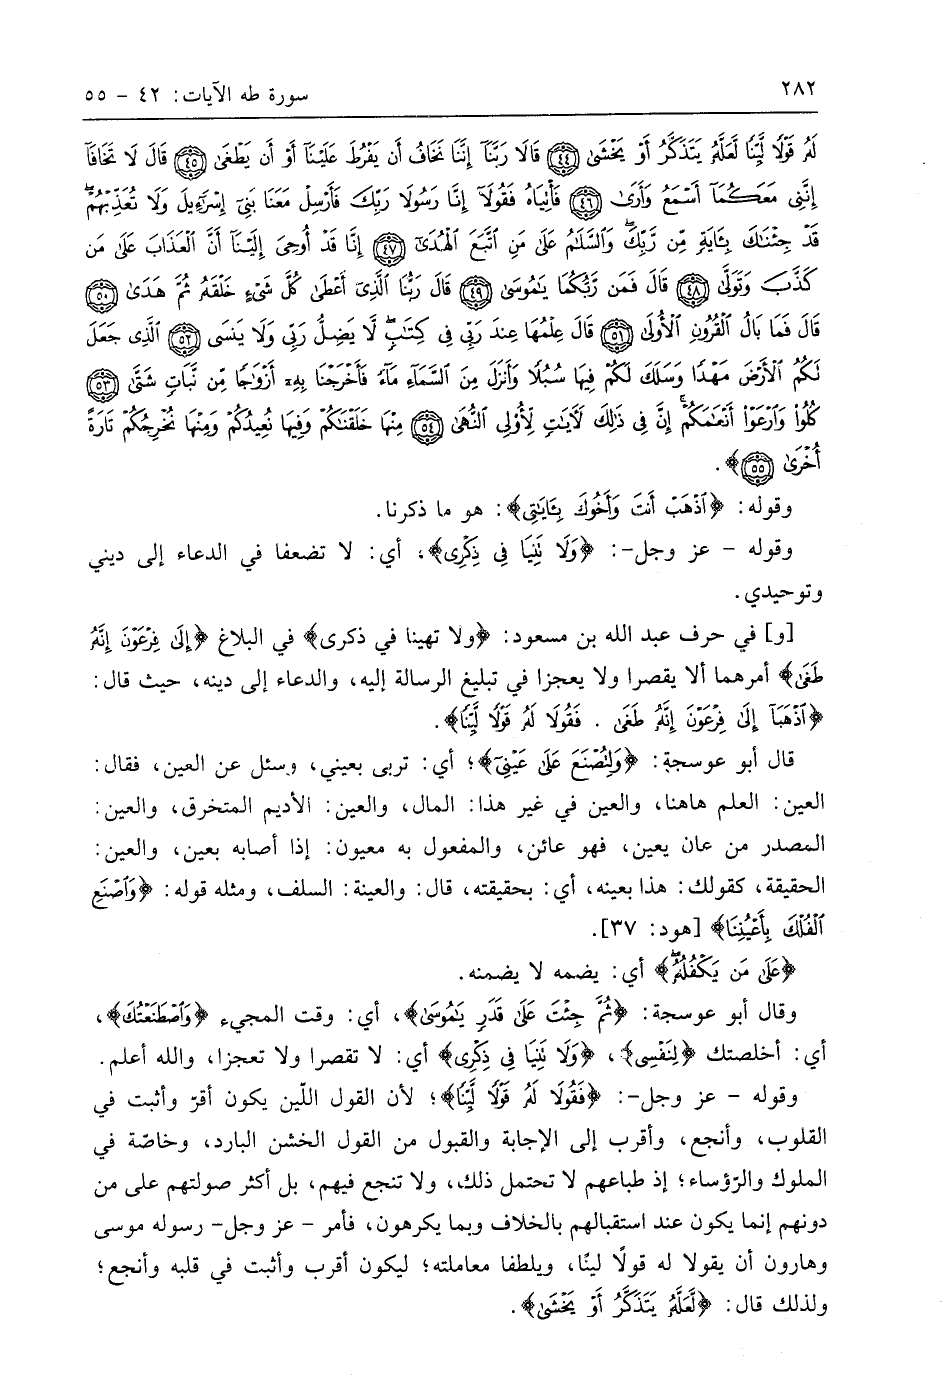 ٢٨٢
سورة طه الآيات: ٤٢ - ٥٥
لَهُۥ قَوْلًا لَّيِّنًا لَّعَلَّهُۥ يَتَذَكَّرُ أَوْ يَخْشَىٰ ٤٤ قَالَا رَبَّنَآ إِنَّنَا نَخَافُ أَن يَفْرُطَ عَلَيْنَآ أَوْ أَن يَطْغَىٰ ٤٥ قَالَ لَا تَخَافَآ
إِنَّنِى مَعَكُمَآ أَسْمَعُ وَأَرَىٰ ٤٦ فَأْتِيَاهُ فَقُولَآ إِنَّا رَسُولَا رَبِّكَ فَأَرْسِلْ مَعَنَا بَنِىٓ إِسْرَٰٓءِيلَ وَلَا تُعَذِّبْهُمْ ۖ
قَدْ جِئْنَٰكَ بِـَٔايَةٍ مِّن رَّبِّكَ ۖ وَٱلسَّلَٰمُ عَلَىٰ مَنِ ٱتَّبَعَ ٱلْهُدَىٰٓ ٤٧ إِنَّا قَدْ أُوحِىَ إِلَيْنَآ أَنَّ ٱلْعَذَابَ عَلَىٰ مَن
كَذَّبَ وَتَوَلَّىٰ ٤٨ قَالَ فَمَن رَّبُّكُمَا يَٰمُوسَىٰ ٤٩ قَالَ رَبُّنَا ٱلَّذِىٓ أَعْطَىٰ كُلَّ شَىْءٍ خَلْقَهُۥ ثُمَّ هَدَىٰ ٥٠
قَالَ فَمَا بَالُ ٱلْقُرُونِ ٱلْأُولَىٰ ٥١ قَالَ عِلْمُهَا عِندَ رَبِّى فِى كِتَٰبٍ ۖ لَّا يَضِلُّ رَبِّى وَلَا يَنسَى ٥٢ ٱلَّذِى جَعَلَ
لَكُمُ ٱلْأَرْضَ مَهْدًا وَسَلَكَ لَكُمْ فِيهَا سُبُلًا وَأَنزَلَ مِنَ ٱلسَّمَآءِ مَآءً فَأَخْرَجْنَا بِهِۦٓ أَزْوَٰجًا مِّن نَّبَاتٍ شَتَّىٰ ٥٣
كُلُوا۟ وَٱرْعَوْا۟ أَنْعَٰمَكُمْ ۗ إِنَّ فِى ذَٰلِكَ لَءَايَٰتٍ لِّأُو۟لِى ٱلنُّهَىٰ ٥٤ مِنْهَا خَلَقْنَٰكُمْ وَفِيهَا نُعِيدُكُمْ وَمِنْهَا نُخْرِجُكُمْ تَارَةً
أُخْرَىٰ ٥٥﴾.
وقوله: ﴿ٱذْهَبْ أَنتَ وَأَخُوكَ بِـَٔايَٰتِى﴾: هو ما ذكرنا.
وقوله - عز وجل-: ﴿وَلَا تَنِيَا فِى ذِكْرِى﴾، أي: لا تضعفا في الدعاء إلى ديني
وتوحيدي.
[و] في حرف عبد الله بن مسعود: ﴿ولا تهينا في ذكرى﴾ في البلاغ ﴿إِلَىٰ فِرْعَوْنَ إِنَّهُۥ
طَغَىٰ﴾ أمرهما ألا يقصرا ولا يعجزا في تبليغ الرسالة إليه، والدعاء إلى دينه، حيث قال:
﴿ٱذْهَبَآ إِلَىٰ فِرْعَوْنَ إِنَّهُۥ طَغَىٰ . فَقُولَا لَهُۥ قَوْلًا لَّيِّنًا﴾.
قال أبو عوسجة: ﴿وَلِتُصْنَعَ عَلَىٰ عَيْنِىٓ﴾؛ أي: تربى بعيني، وسئل عن العين، فقال:
العين: العلم هاهنا، والعين في غير هذا: المال، والعين: الأديم المتخرق، والعين:
المصدر من عان يعين، فهو عائن، والمفعول به معيون: إذا أصابه بعين، والعين:
الحقيقة، كقولك: هذا بعينه، أي: بحقيقته، قال: والعينة: السلف، ومثله قوله: ﴿وَٱصْنَعِ
ٱلْفُلْكَ بِأَعْيُنِنَا﴾ [هود: ٣٧].
﴿عَلَىٰ مَن يَكْفُلُهُۥ ۖ﴾ أي: يضمه لا يضمنه.
وقال أبو عوسجة: ﴿ثُمَّ جِئْتَ عَلَىٰ قَدَرٍ يَٰمُوسَىٰ﴾، أي: وقت المجيء ﴿وَٱصْطَنَعْتُكَ﴾،
أي: أخلصتك ﴿لِنَفْسِى﴾، ﴿وَلَا تَنِيَا فِى ذِكْرِى﴾ أي: لا تقصرا ولا تعجزا، والله أعلم.
وقوله - عز وجل-: ﴿فَقُولَا لَهُۥ قَوْلًا لَّيِّنًا﴾؛ لأن القول اللّين يكون أقرّ وأثبت في
القلوب، وأنجع، وأقرب إلى الإجابة والقبول من القول الخشن البارد، وخاصّة في
الملوك والرّؤساء؛ إذ طباعهم لا تحتمل ذلك،، ولا تنجع فيهم، بل أكثر صولتهم على من
دونهم إنما يكون عند استقبالهم بالخلاف وبما يكرهون، فأمر - عز وجل- رسوله موسى
وهارون أن يقولا له قولًا لينًا، ويلطفا معاملته؛ ليكون أقرب وأثبت في قلبه وأنجع؛
ولذلك قال: ﴿لَّعَلَّهُۥ يَتَذَكَّرُ أَوْ يَخْشَىٰ﴾.